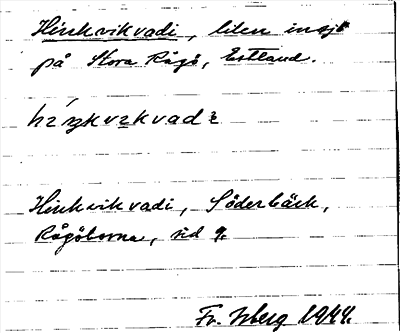 Hinkvikvadi, liten insjö
på Stora Rågö, Estland.
Hinkvikvadi, Söderbäck,
Rågöborna, sid 9.
Fr. Isberg 1944.